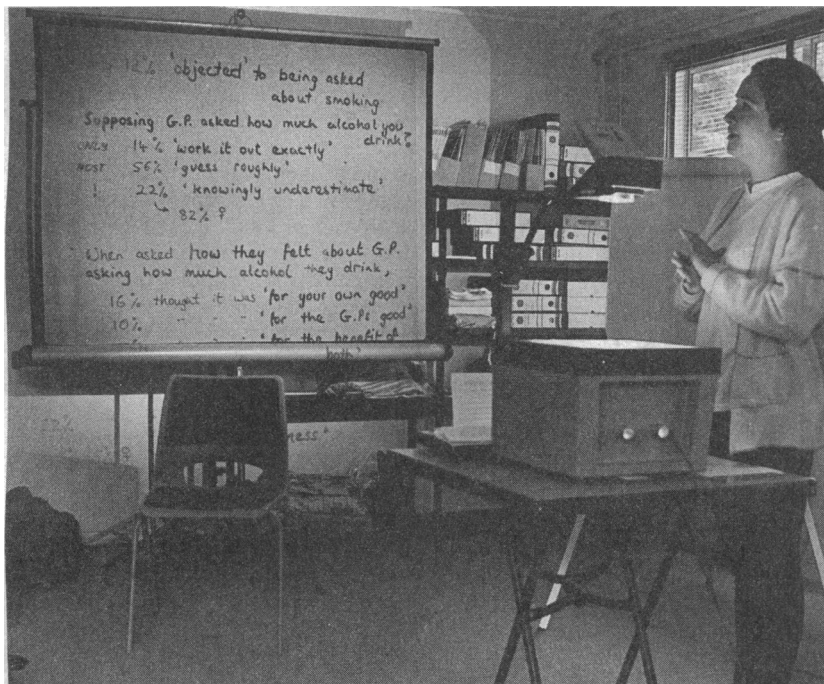 12% 'objected' to being asked
about smoking
Supposing G.P. asked how much alcohol you
drink?
ONLY 14% 'work it out exactly'
MOST 56% 'guess roughly'
! 22% 'knowingly underestimate'
↳ 82% ?
When asked how they felt about G.P.
asking how much alcohol they drink,
16% thought it was 'for your own good'
10% " " " 'for the G.Ps good'
'for the benefit of
both'
ness"